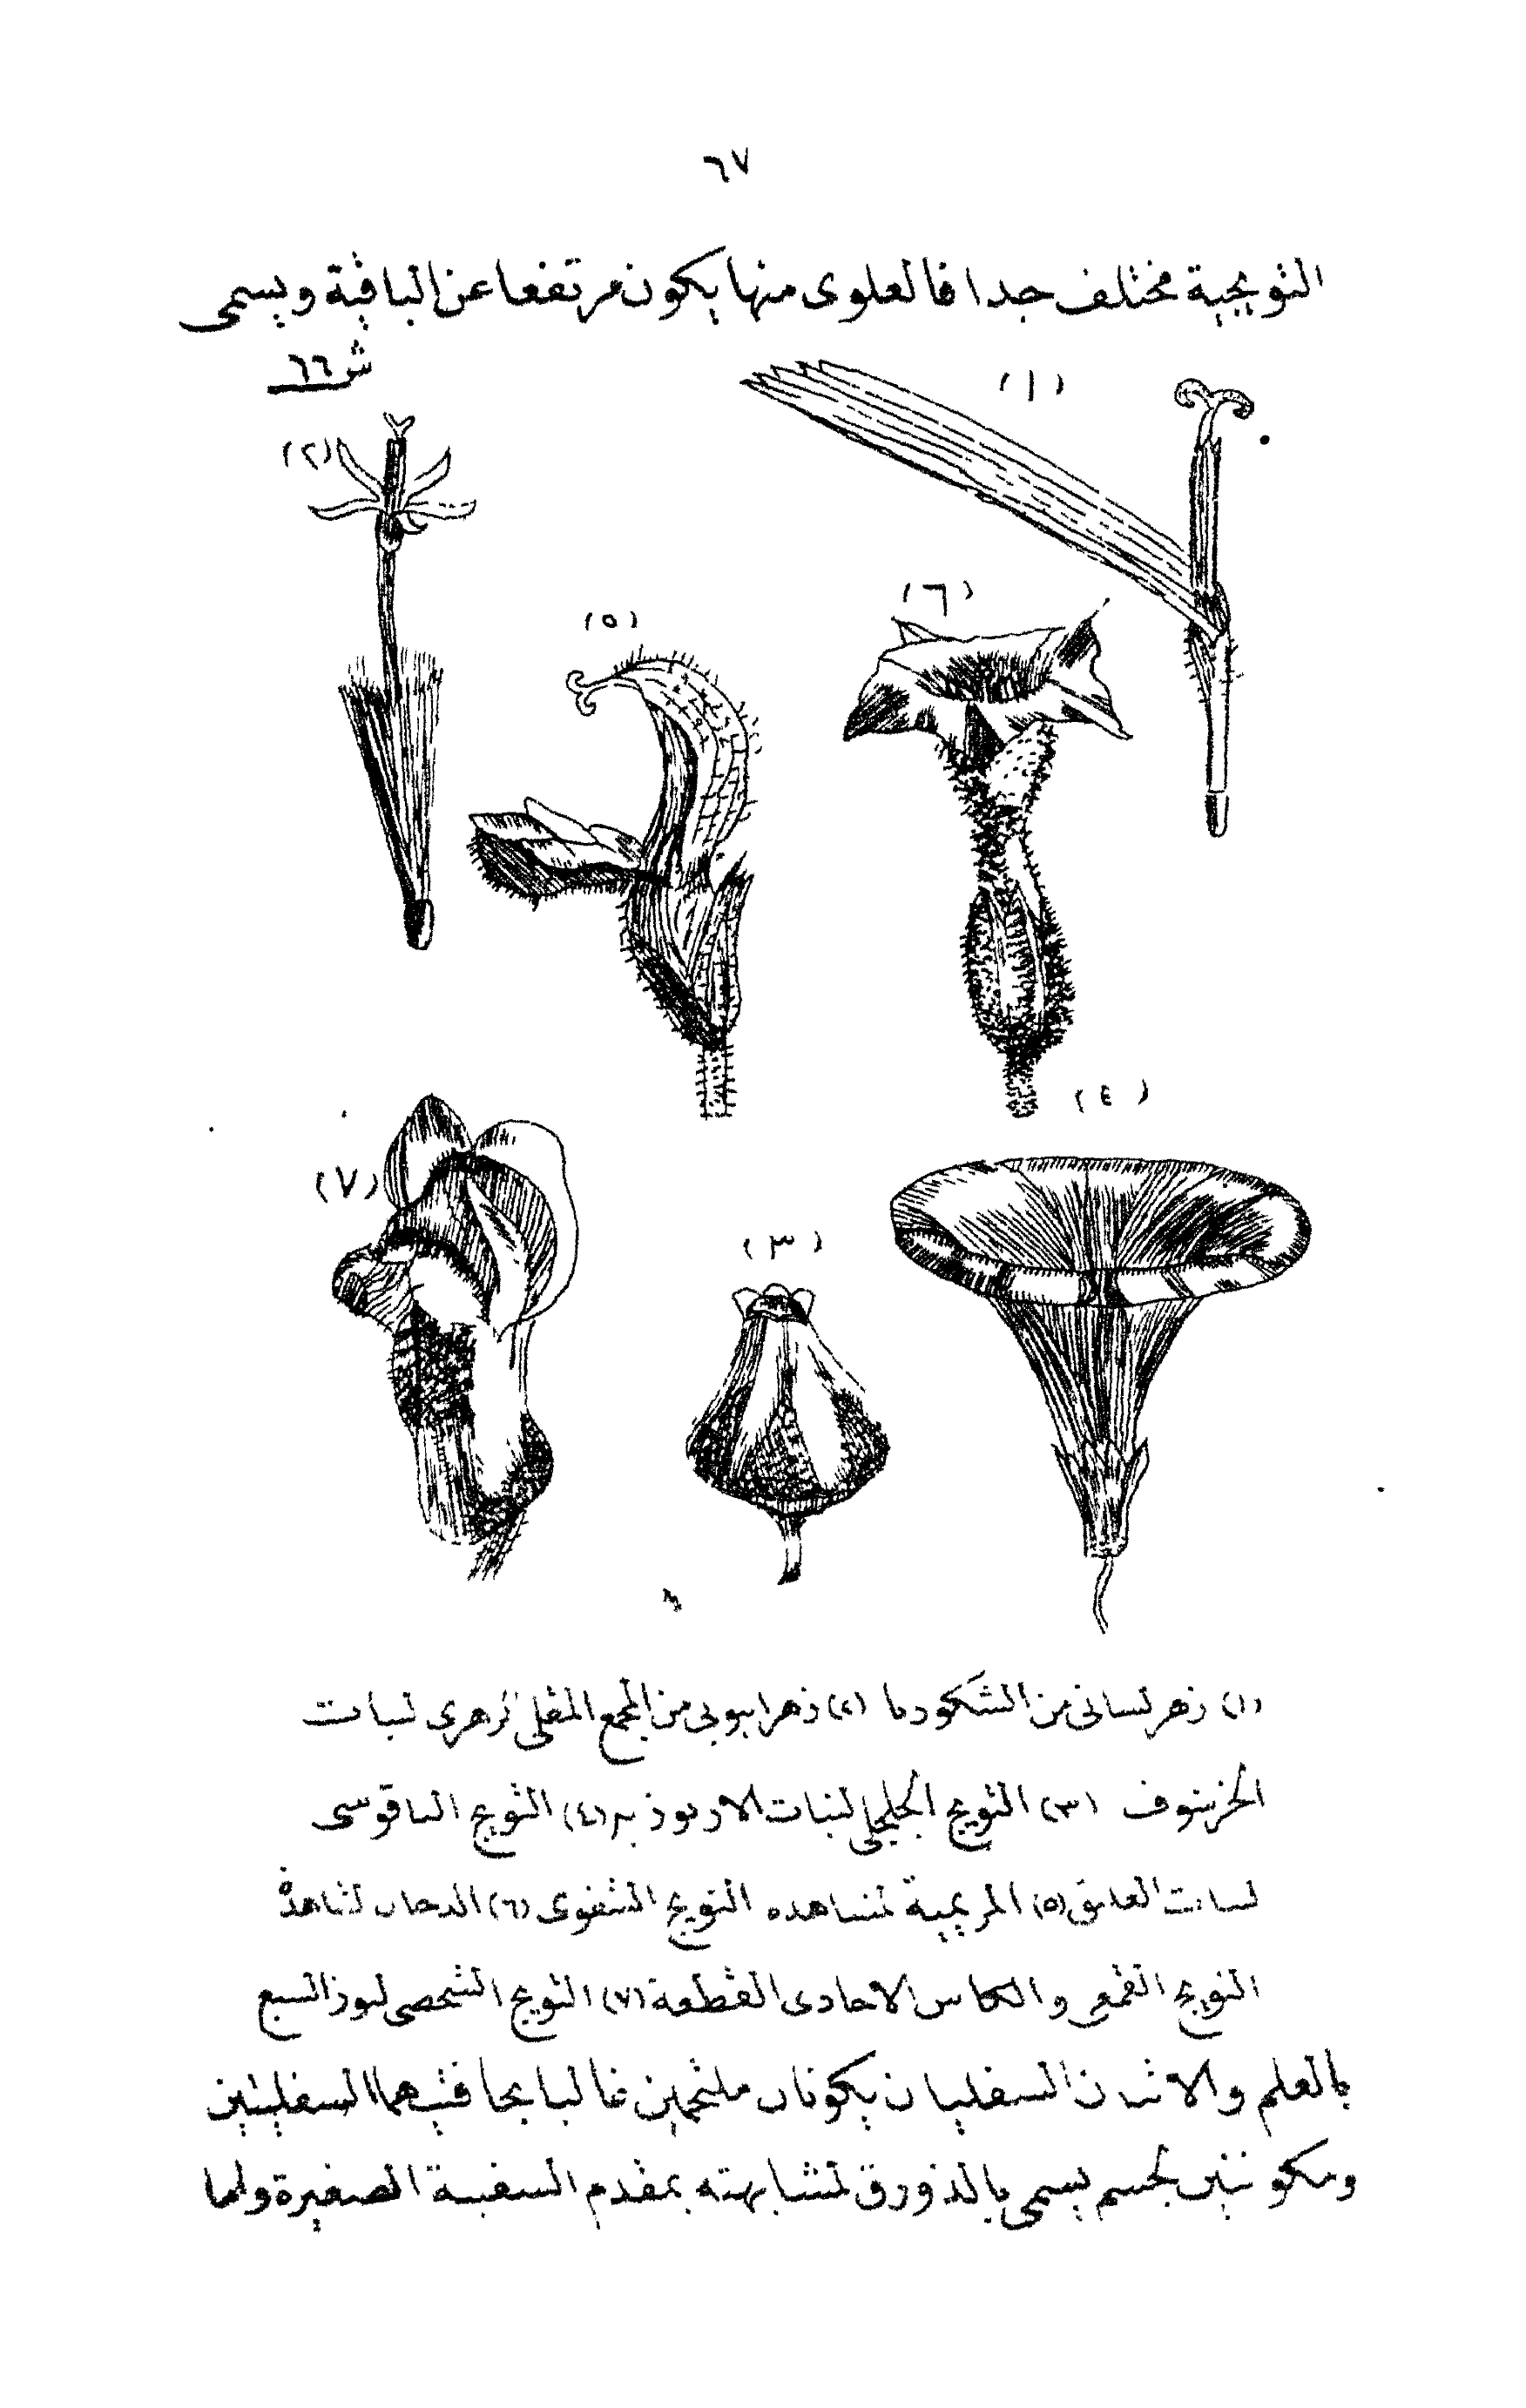 ٦٧
التويجية مختلف جدا فالعلوى منها يكون مرتفعا عن الباقية ويسمى
ش ٦٦
(١)
(٢)
(٦)
(٥)
(٤)
(٧)
(٣)
(١) زهر لسانى من الشكوريا (٢) زهر انبوبى من المجمع المقلى زهرى لنبات
الخرشوف (٣) التويج الجلجلى لنبات الاربوذيه (٤) التويج الناقوسى
لنبات العليق (٥) المريمية لمشاهده التويج الشفوى (٦) الدخان لشاهدة
التويج القمعى والكاس الاحادى القطعة (٧) التويج الشخصى لبوز السبع
بالعلم والاثنان السفليان يكونان ملتحمين غالبا بحافتيهما السفليتين
ومكونين لجسم يسمى بالذورق لمشابهته بمقدم السفينة الصغيرة ولما